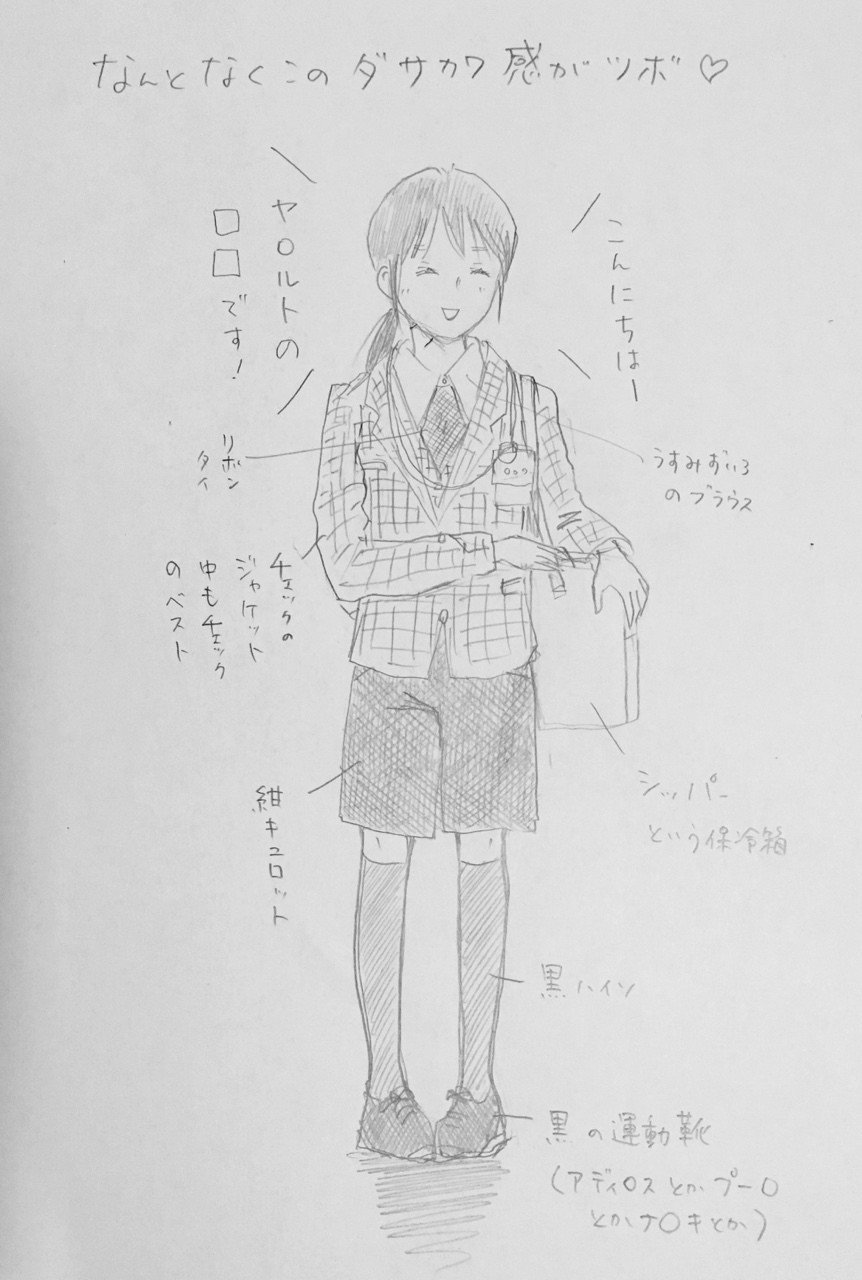 なんとなくこのダサカワ感がツボ♡
こんにちはー
ヤ○ルトの
□□です！
リボン
タイ
うすみずいろ
のブラウス
チェックの
ジャケット
中もチェック
のベスト
シッパー
という保冷箱
紺キュロット
黒ハイソ
黒の運動靴
(アディ○スとかプー○
とかナ○キとか)